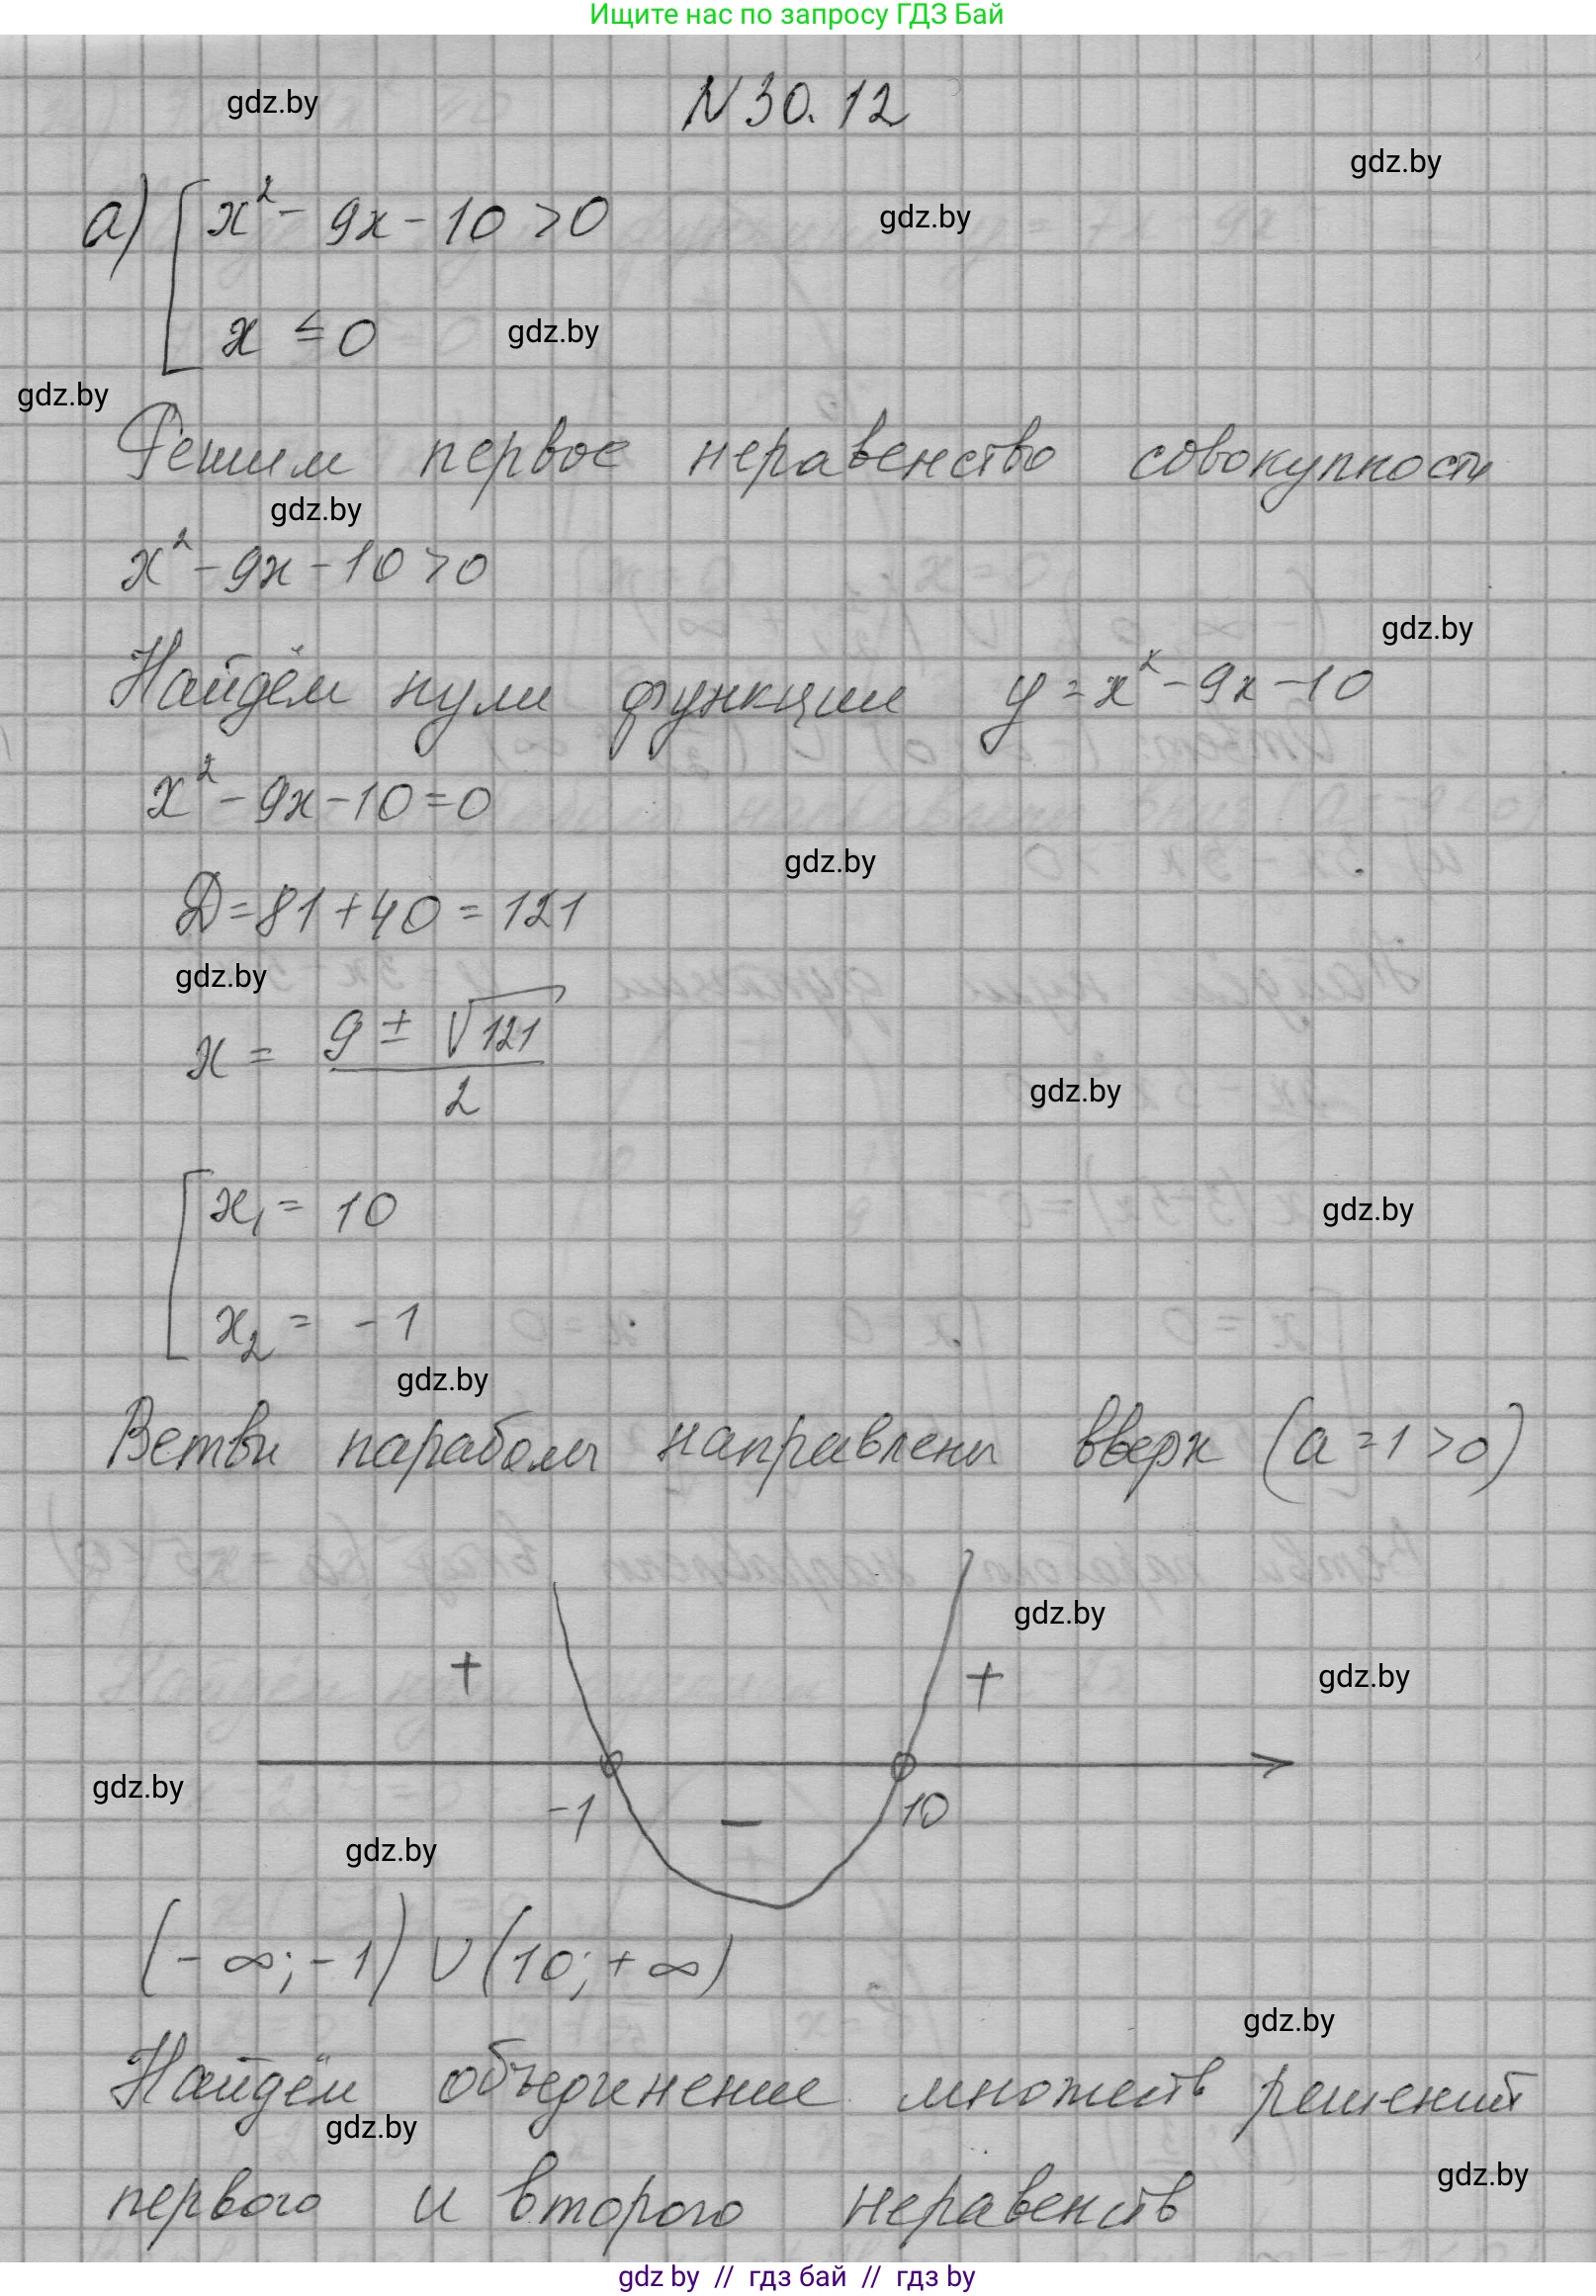 Ищите нас по запросу ГДЗ Бай
gdz.by
N 30. 12
gdz.by
gdz.by
а) [ x² - 9x - 10 > 0
x ≤ 0
gdz.by
gdz.by
Решим первое неравенство совокупности
gdz.by
x² - 9x - 10 > 0
gdz.by
Найдём нули функции y = x² - 9x - 10
x² - 9x - 10 = 0
gdz.by
D = 81 + 40 = 121
gdz.by
x = (9 ± √121) / 2
gdz.by
[ x₁ = 10
gdz.by
x₂ = -1
gdz.by
Ветви параболы направлены вверх (a = 1 > 0)
gdz.by
+ +
gdz.by
gdz.by
-1 − 10
gdz.by
(-∞; -1) ∪ (10; +∞)
gdz.by
Найдём объединение множеств решений
gdz.by
gdz.by
первого и второго неравенств
gdz by // гдз бай // гдз by